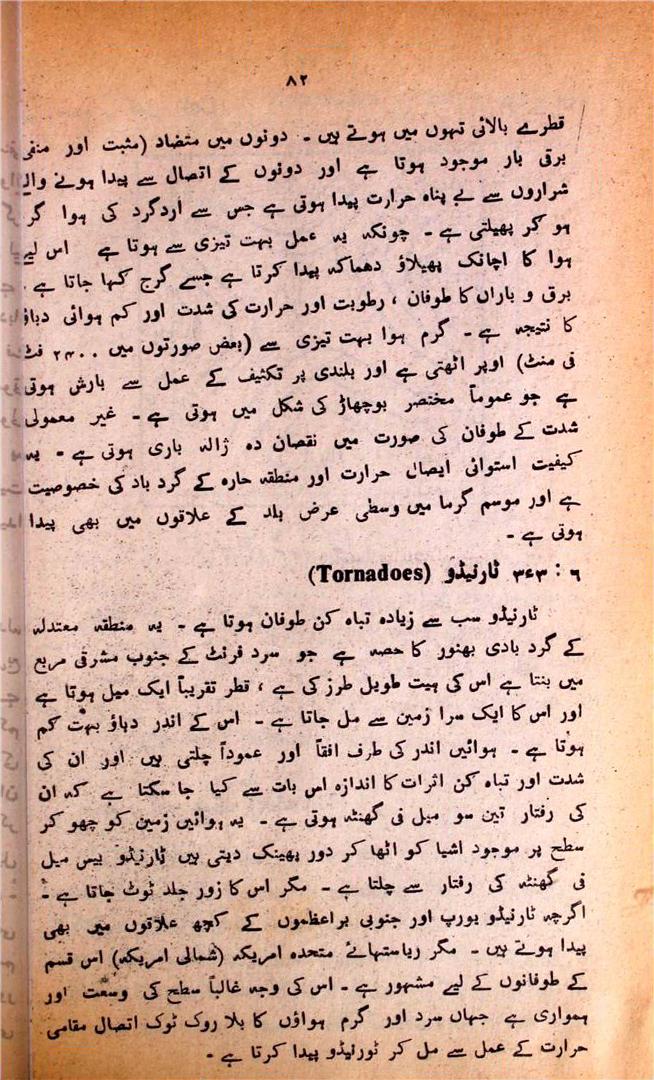 ۸۲
قطرے بالائی تہوں میں ہوتے ہیں ۔ دونوں میں متضاد (مثبت اور منفی
برقی بار موجود ہوتا ہے اور دونوں کے اتصال سے پیدا ہونے والے
شراروں سے بے پناہ حرارت پیدا ہوتی ہے جس سے اردگرد کی ہوا گر
ہو کر پھیلتی ہے ۔ چونکہ یہ عمل بہت تیزی سے ہوتا ہے اس لیے
ہوا کا اچانک پھیلاؤ دھماکہ پیدا کرتا ہے جسے گرج کہا جاتا ہے ۔
برق و باراں کا طوفان ، رطوبت اور حرارت کی شدت اور کم ہوائی دباؤ
کا نتیجہ ہے ۔ گرم ہوا بہت تیزی سے (بعض صورتوں میں ۲۴۰۰ فٹ
فی منٹ) اوپر اٹھتی ہے اور بلندی پر تکثیف کے عمل سے بارش ہوتی
ہے جو عموماً مختصر بوچھاڑ کی شکل میں ہوتی ہے ۔ غیر معمولی
شدت کے طوفان کی صورت میں نقصان دہ ژالہ باری ہوتی ہے ۔ یہ
کیفیت استوائی ایصال حرارت اور منطقہ حارہ کے گرد باد کی خصوصیت
ہے اور موسم گرما میں وسطی عرض بلد کے علاقوں میں بھی پیدا
ہوتی ہے ۔
۶ : ۳ء۳ ٹارنیڈو (Tornadoes)
ٹارنیڈو سب سے زیادہ تباہ کن طوفان ہوتا ہے ۔ یہ منطقہ معتدلہ
کے گرد بادی بھنور کا حصہ ہے جو سرد فرنٹ کے جنوب مشرقی مربع
میں بنتا ہے اس کی ہیت طویل طرز کی ہے ، قطر تقریباً ایک میل ہوتا ہے
اور اس کا ایک سرا زمین سے مل جاتا ہے ۔ اس کے اندر دباؤ بہت کم
ہوتا ہے ۔ ہوائیں اندر کی طرف افقاً اور عموداً چلتی ہیں اور ان کی
شدت اور تباہ کن اثرات کا اندازہ اس بات سے کیا جا سکتا ہے کہ ان
کی رفتار تین سو میل فی گھنٹہ ہوتی ہے ۔ یہ ہوائیں زمین کو چھو کر
سطح پر موجود اشیا کو اٹھا کر دور پھینک دیتی ہیں ٹارنیڈو بیس میل
فی گھنٹہ کی رفتار سے چلتا ہے ۔ مگر اس کا زور جلد ٹوٹ جاتا ہے ۔
اگرچہ ٹارنیڈو یورپ اور جنوبی براعظموں کے کچھ علاقوں میں بھی
پیدا ہوتے ہیں ۔ مگر ریاستہائے متحدہ امریکہ (شمالی امریکہ) اس قسم
کے طوفانوں کے لیے مشہور ہے ۔ اس کی وجہ غالباً سطح کی وسعت اور
ہمواری ہے جہاں سرد اور گرم ہواؤں کا بلا روک ٹوک اتصال مقامی
حرارت کے عمل سے مل کر ٹورنیڈو پیدا کرتا ہے ۔